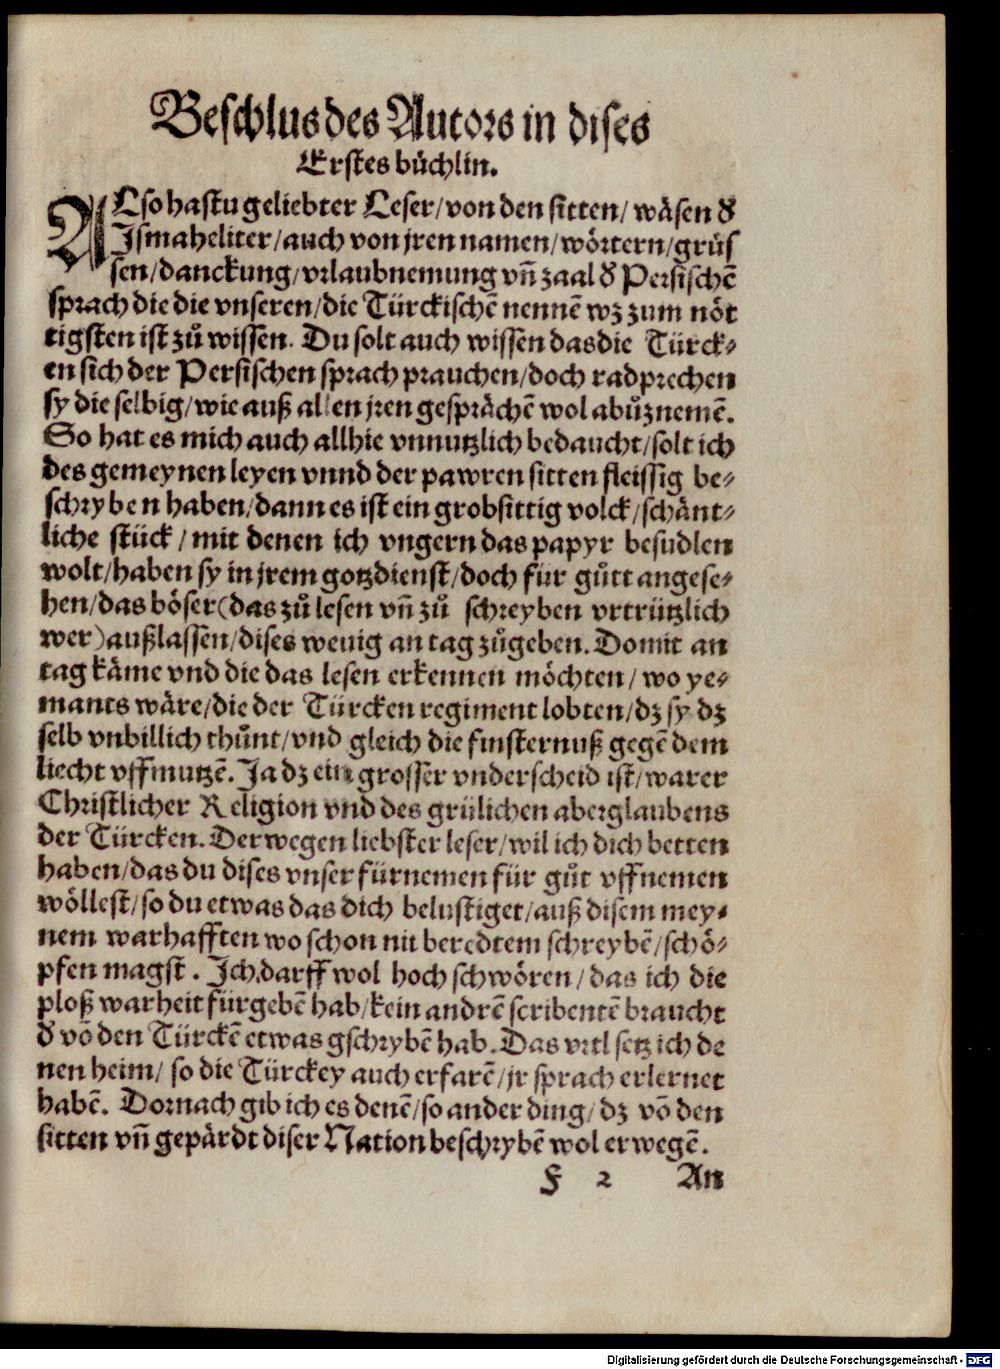 Beschlus des Autors in dises
Erstes büchlin.
ALso hastu geliebter Leser/von den sitten/ wäsen dͤ
Jsmaheliter/auch von jren namen/wörtern/grüs
sen/danckung/vrlaubnemung vñ zaal dͤ Persischẽ
sprach die die vnseren/die Türckischẽ nennẽ wz zum nöt
tigsten ist zů wissen. Du solt auch wissen das die Türck⸗
en sich der Persischen sprach prauchen/doch radprechen
sy die selbig/wie auß allen jren gesprächẽ wol abůznemẽ.
So hat es mich auch allhie vnnutzlich bedaucht/solt ich
des gemeynen leyen vnnd der pawren sitten fleissig be⸗
schryben haben/dann es ist ein grobsittig volck/schänt⸗
liche stück / mit denen ich vngern das papyr besudlen
wolt/haben sy in jrem gotzdienst/doch für gůtt angese⸗
hen/das böser(das zů lesen vñ zů schreyben vrtrützlich
wer)außlassen/dises wenig an tag zůgeben. Domit an
tag käme vnd die das lesen erkennen möchten/ wo ye⸗
mants wäre/die der Türcken regiment lobten/dz sy dz
selb vnbillich thůnt/vnd gleich die finsternuß gegẽ dem
liecht vffmutzẽ. Ja dz ein grosser vnderscheid ist/warer
Christlicher Religion vnd des grülichen aberglaubens
der Türcken. Derwegen liebster leser/wil ich dich betten
haben/das du dises vnser fürnemen für gůt vffnemen
wöllest/so du etwas das dich belustiget/auß disem mey⸗
nem warhafften wo schon nit beredtem schreybẽ/schö⸗
pfen magst . Ich darff wol hoch schwören/ das ich die
ploß warheit fürgebẽ hab/kein andrẽ scribentẽ braucht
dͤ võ den Türckẽ etwas gschrybẽ hab. Das vrtl setz ich de
nen heim/ so die Türckey auch erfarẽ/jr sprach erlernet
habẽ. Dornach gib ich es denẽ/so ander ding/dz võ den
sitten vñ gepärdt diser Nation beschrybẽ wol erwegẽ.
F 2 An
Digitalisierung gefördert durch die Deutsche Forschungsgemeinschaft - DFG